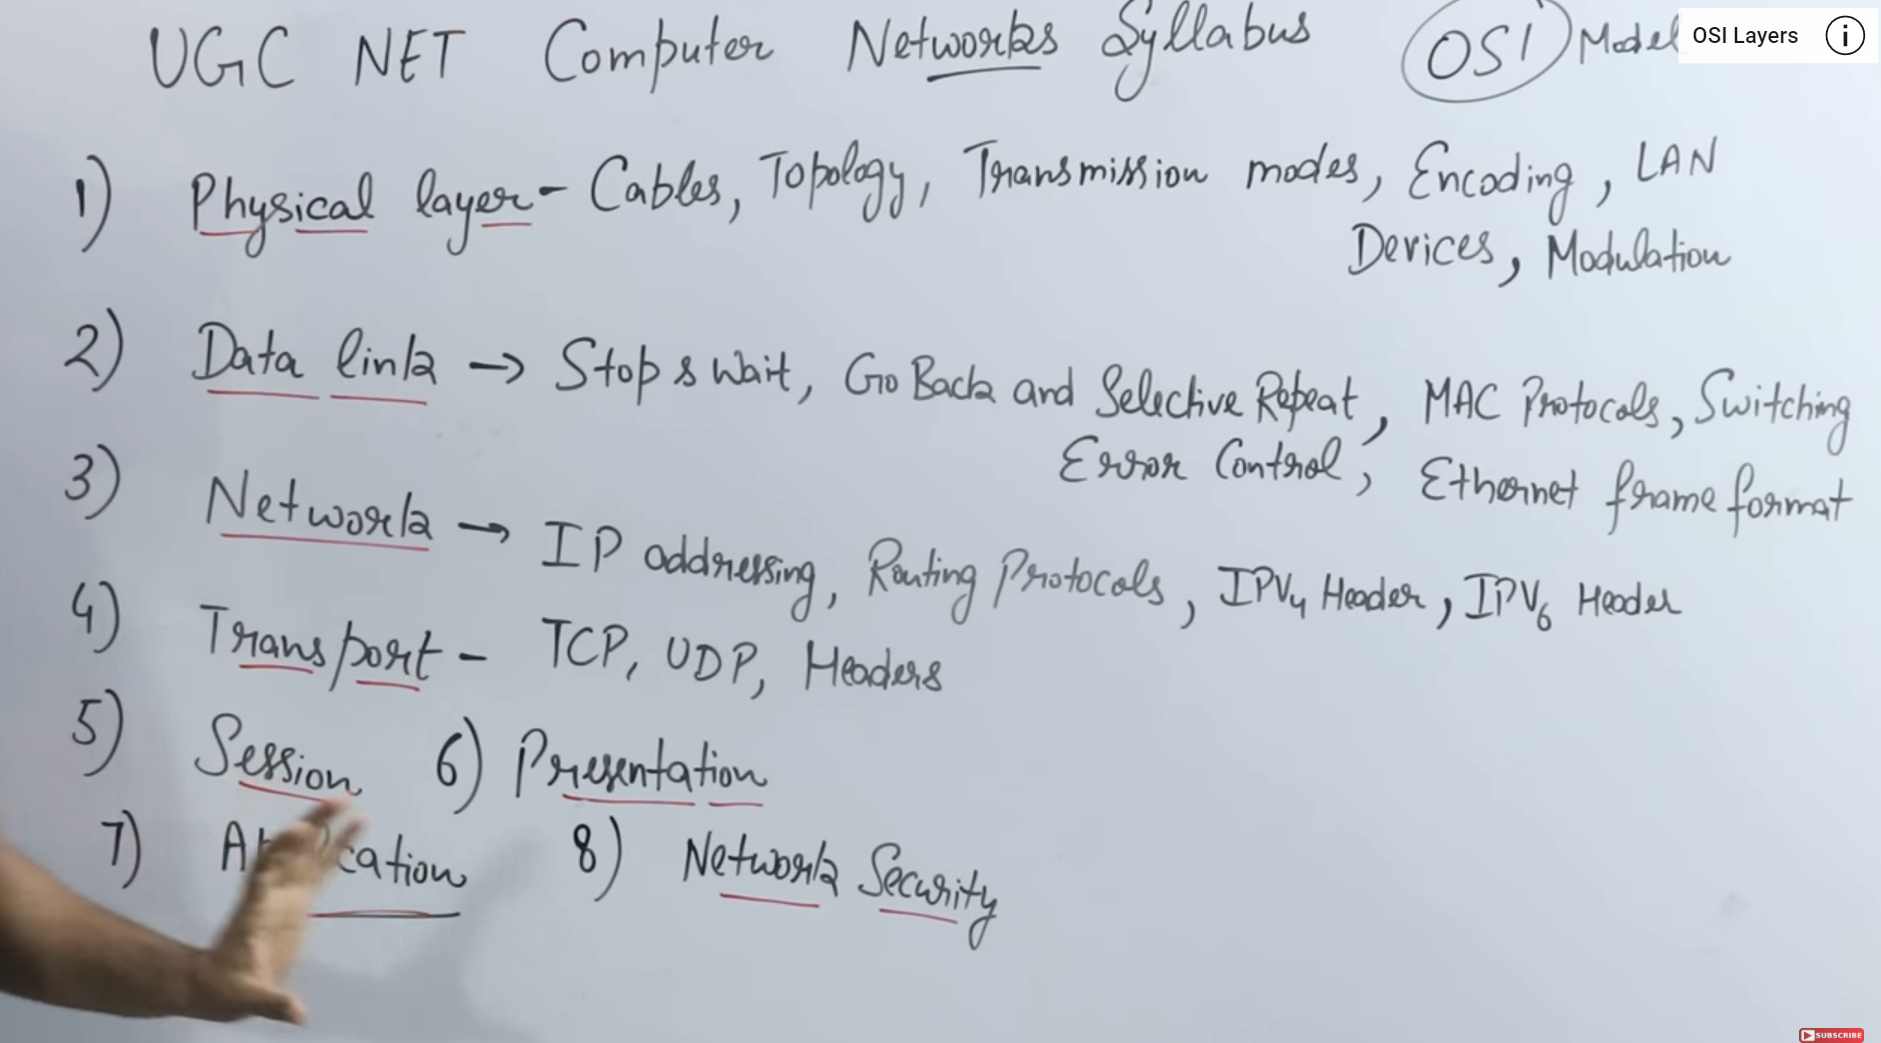 UGC NET Computer Networks Syllabus OSI Model
OSI Layers
1) Physical layer - Cables, Topology, Transmission modes, Encoding, LAN
Devices, Modulation
2) Data link → Stop & Wait, Go Back and Selective Repeat, MAC Protocols, Switching
Error Control, Ethernet frame format
3) Network → IP addressing, Routing Protocols, IPV4 Header, IPV6 Header
4) Transport - TCP, UDP, Headers
5) Session 6) Presentation
7) Application 8) Network Security
SUBSCRIBE